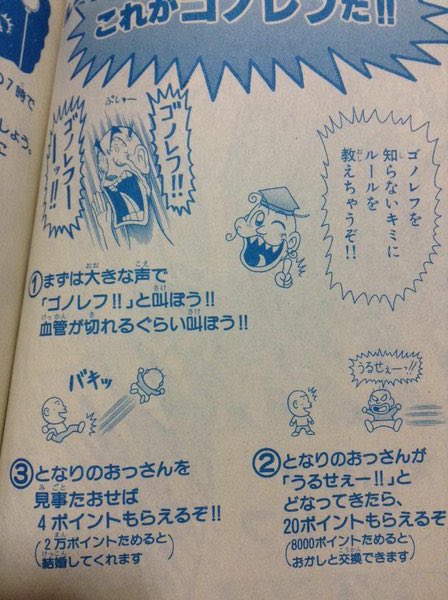 これがゴノレフだ!!
の7時で
しょう。
に
ゴノレフを
知らないキミに
ルールを
教えちゃうぞ!!
ぷしゅー
ゴノレフ!!
ゴノレフーー!!
①まずは大きな声で
「ゴノレフ!!」と叫ぼう!!
血管が切れるぐらい叫ぼう!!
うるせぇーっ!!
②となりのおっさんが
「うるせぇー!!」と
どなってきたら、
20ポイントもらえるぞ
(8000ポイントためると
おかしと交換できます)
バキッ
③となりのおっさんを
見事たおせば
4ポイントもらえるぞ!!
(2万ポイントためると
結婚してくれます)